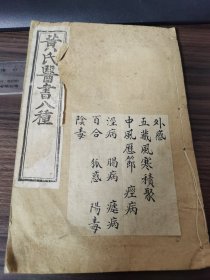 黃氏醫書八種
外感
五藏風寒積聚
中風歷節 痙病
溼病 暍病 瘧病
百合 狐惑 陽毒
陰毒